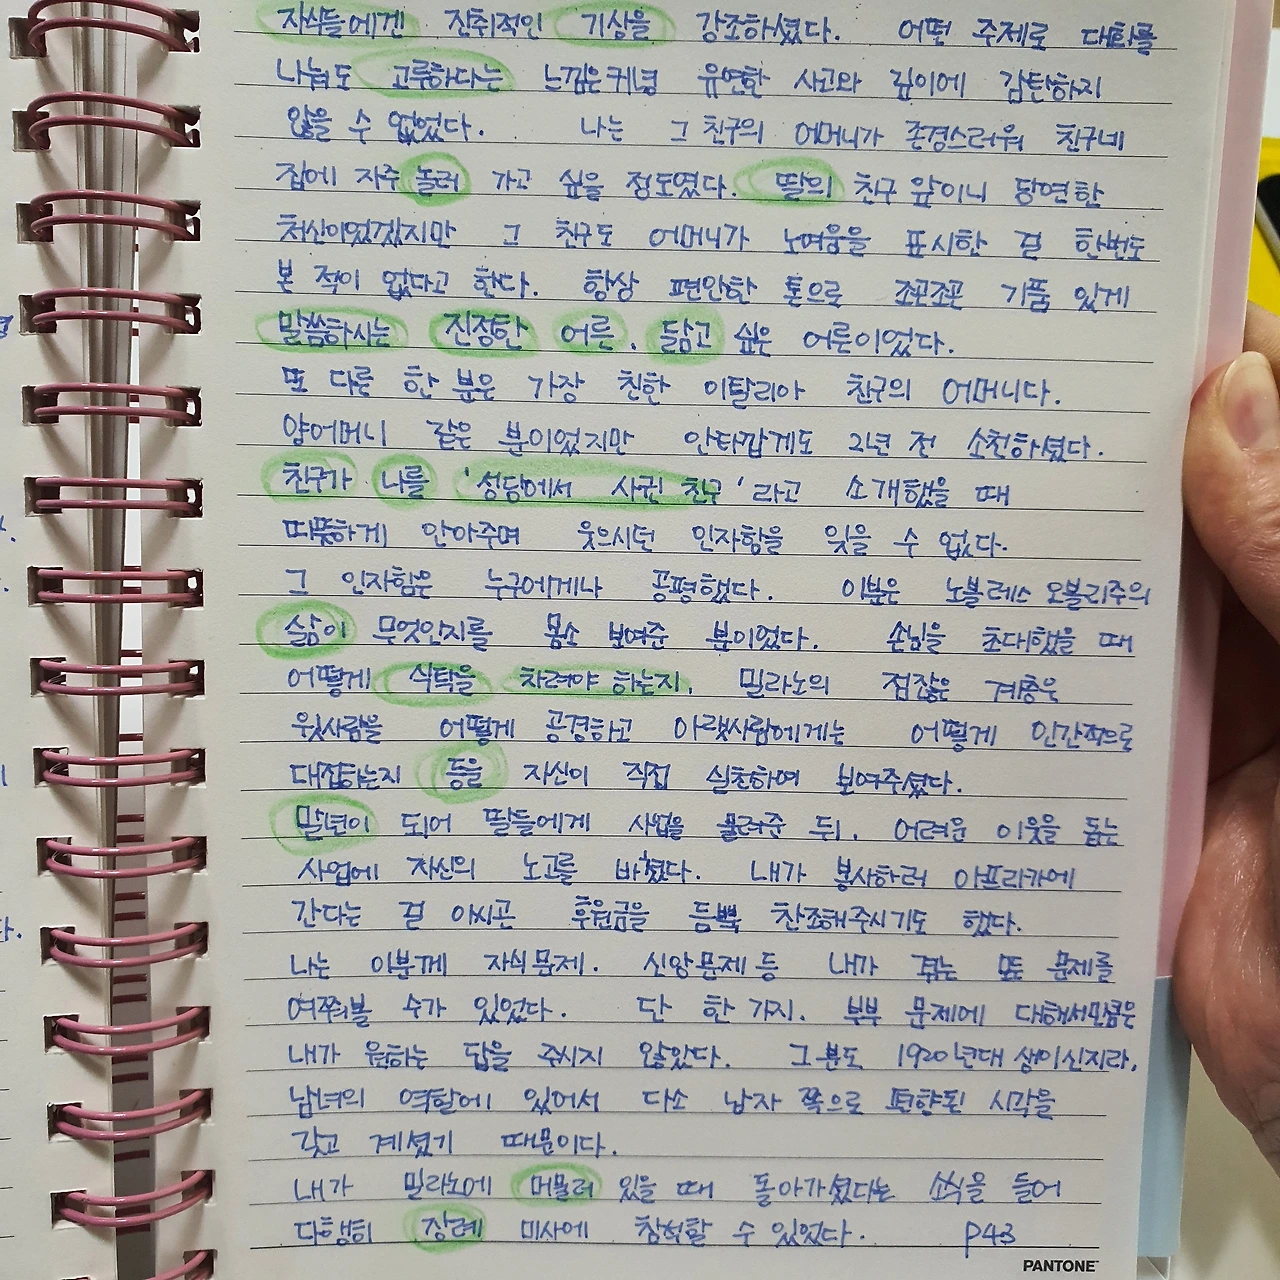 자식들에겐 진취적인 기상을 강조하셨다. 어떤 주제로 대화를
나눠도 고루하다는 느낌은커녕 유연한 사고와 깊이에 감탄하지
않을 수 없었다. 나는 그 친구의 어머니가 존경스러워 친구네
집에 자주 놀러 가고 싶을 정도였다. 딸의 친구 앞이니 당연한
처신이었겠지만 그 친구도 어머니가 노여움을 표시한 걸 한번도
본 적이 없다고 한다. 항상 편안한 톤으로 조곤조곤 기품 있게
말씀하시는 진정한 어른. 닮고 싶은 어른이었다.
또 다른 한 분은 가장 친한 이탈리아 친구의 어머니다.
양어머니 같은 분이었지만 안타깝게도 2년 전 소천하셨다.
친구가 나를 '성당에서 사귄 친구'라고 소개했을 때
따뜻하게 안아주며 웃으시던 인자함을 잊을 수 없다.
그 인자함은 누구에게나 공평했다. 이분은 노블레스 오블리주의
삶이 무엇인지를 몸소 보여준 분이었다. 손님을 초대했을 때
어떻게 식탁을 차려야 하는지, 밀라노의 점잖은 계층은
윗사람을 어떻게 공경하고 아랫사람에게는 어떻게 인간적으로
대접하는지 등을 자신이 직접 실천하여 보여주셨다.
말년이 되어 딸들에게 사업을 물려준 뒤, 어려운 이웃을 돕는
사업에 자신의 노고를 바쳤다. 내가 봉사하러 아프리카에
간다는 걸 아시곤 후원금을 듬뿍 찬조해주시기도 했다.
나는 이분께 자식문제. 신앙문제 등 내가 겪는 모든 문제를
여쭤볼 수가 있었다. 단 한 가지. 부부 문제에 대해서만큼은
내가 원하는 답을 주시지 않았다. 그분도 1920년대 생이신지라,
남녀의 역할에 있어서 다소 남자 쪽으로 편향된 시각을
갖고 계셨기 때문이다.
내가 밀라노에 머물러 있을 때 돌아가셨다는 소식을 들어
다행히 장례 미사에 참석할 수 있었다. P43
PANTONE